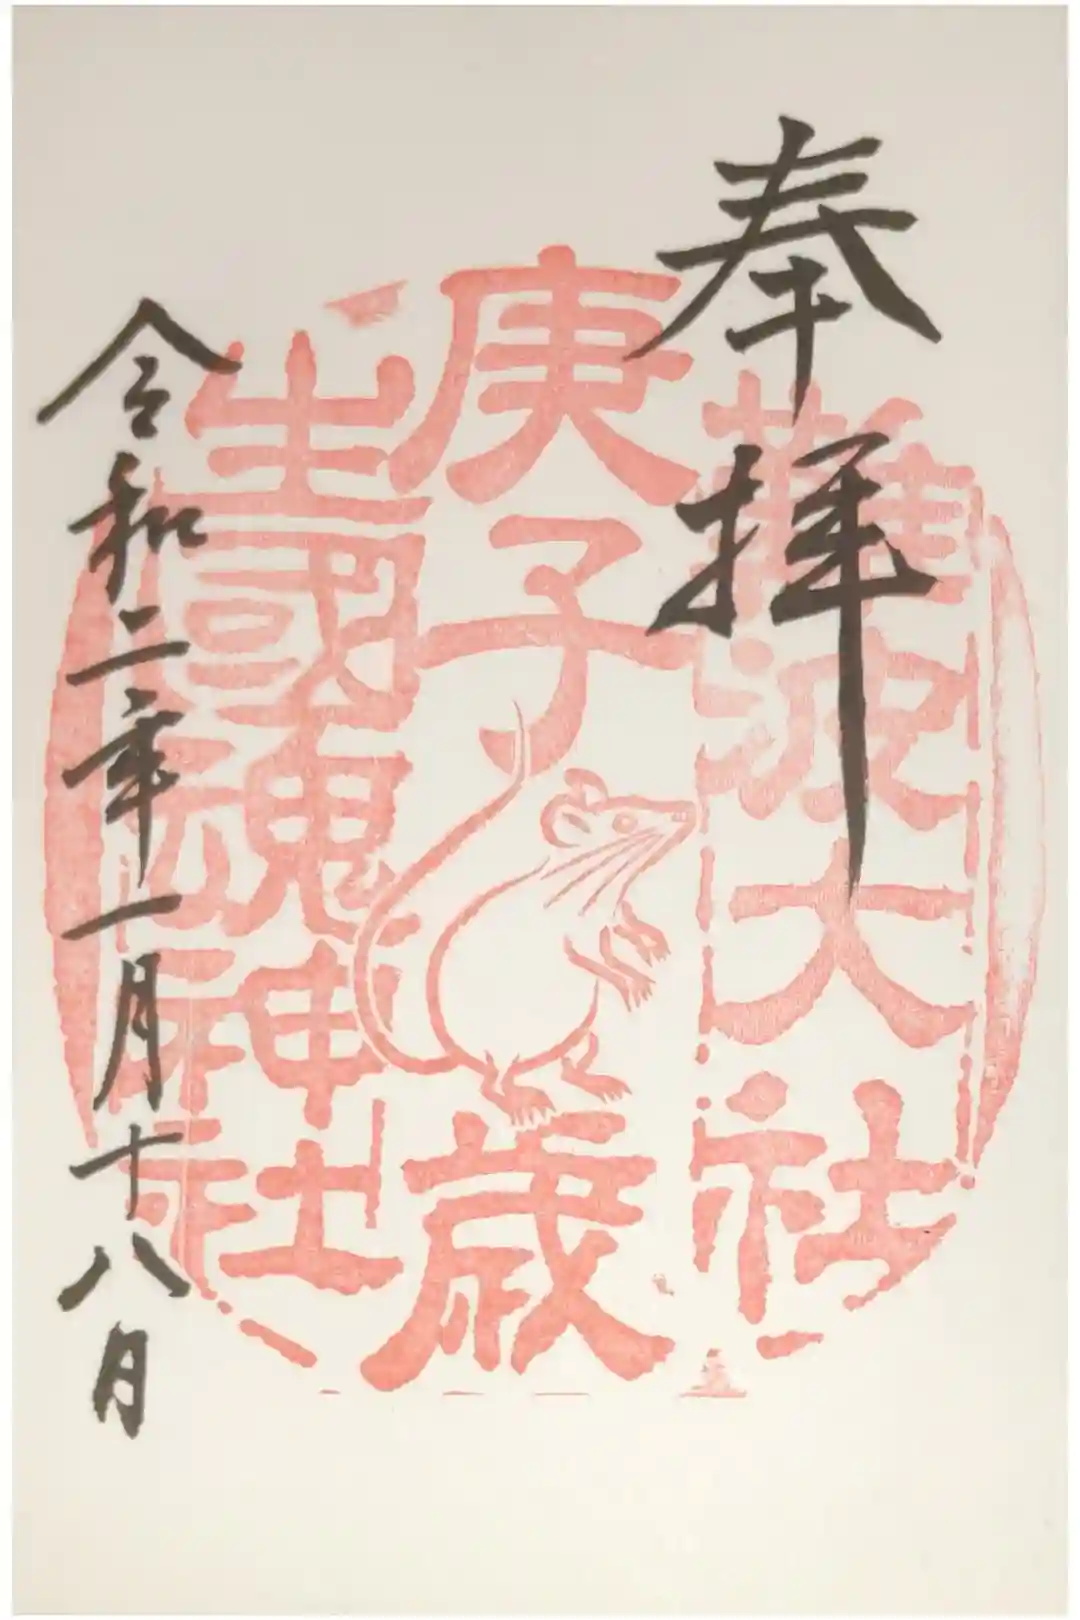 奉拝
難波大社
庚子歳
生國魂神社
令和二年一月十八日